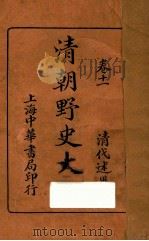 卷十一
清代述
清朝野史大
上海中華書局印行